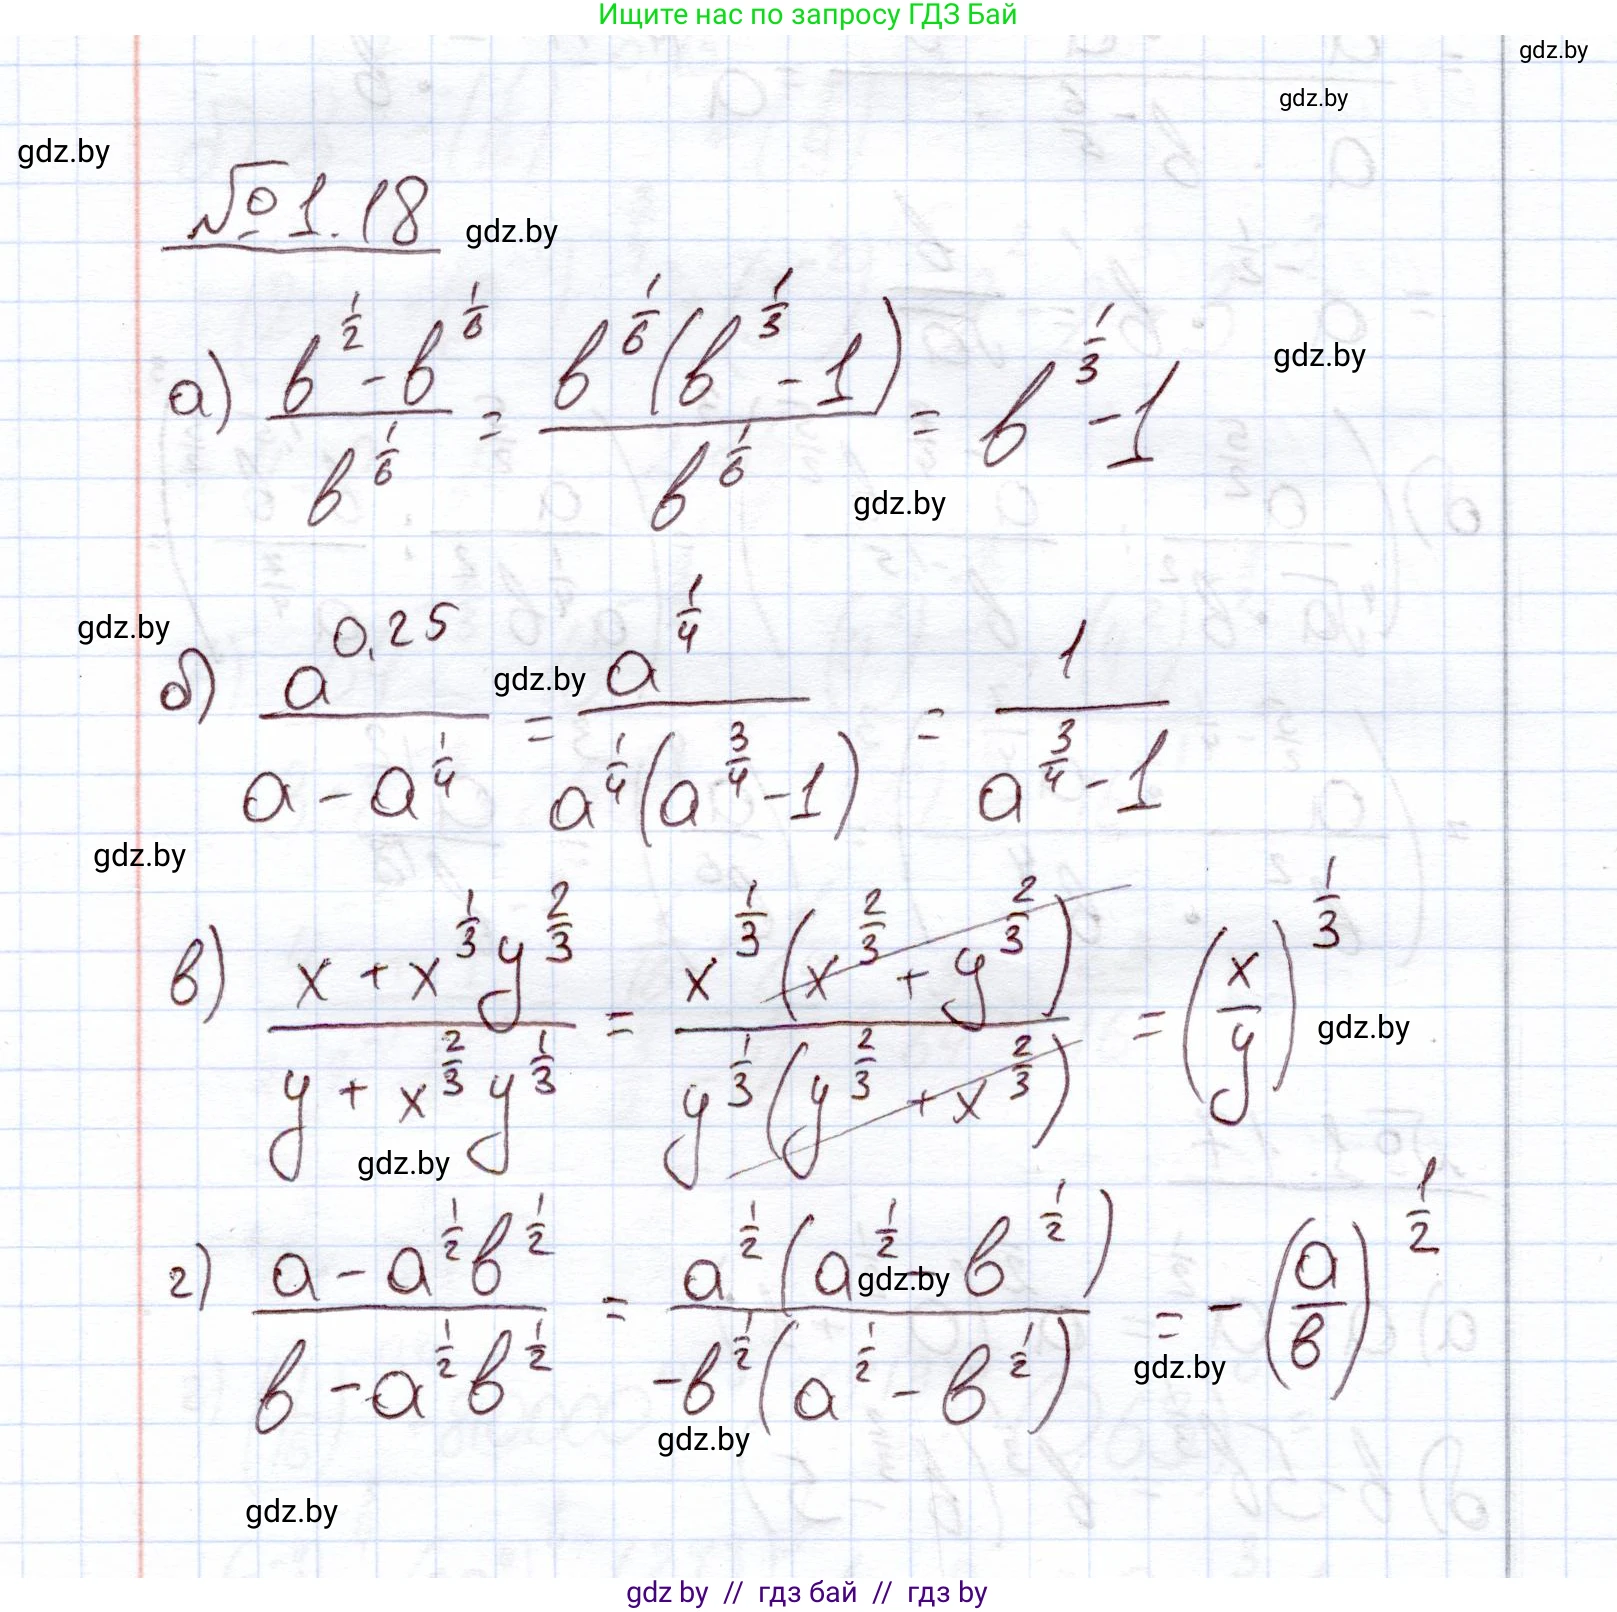 Ищите нас по запросу ГДЗ Бай
gdz.by
gdz.by
gdz.by
№1.18 gdz.by
а) (в^(1/2) - в^(1/6)) / в^(1/6) = в^(1/6)(в^(1/3) - 1) / в^(1/6) = в^(1/3) - 1
gdz.by
gdz.by
gdz.by
б) a^(0,25) / (a - a^(1/4)) = a^(1/4) / (a^(1/4)(a^(3/4) - 1)) = 1 / (a^(3/4) - 1)
gdz.by
gdz.by
в) (x + x^(1/3) y^(2/3)) / (y + x^(2/3) y^(1/3)) = x^(1/3)(x^(2/3) + y^(2/3)) / (y^(1/3)(y^(2/3) + x^(2/3))) = (x/y)^(1/3)
gdz.by
gdz.by
г) (a - a^(1/2) в^(1/2)) / (в - a^(1/2) в^(1/2)) = a^(1/2)(a^(1/2) - в^(1/2)) / (-в^(1/2)(a^(1/2) - в^(1/2))) = -(a/в)^(1/2)
gdz.by
gdz.by
gdz.by
gdz.by
gdz by // гдз бай // гдз by